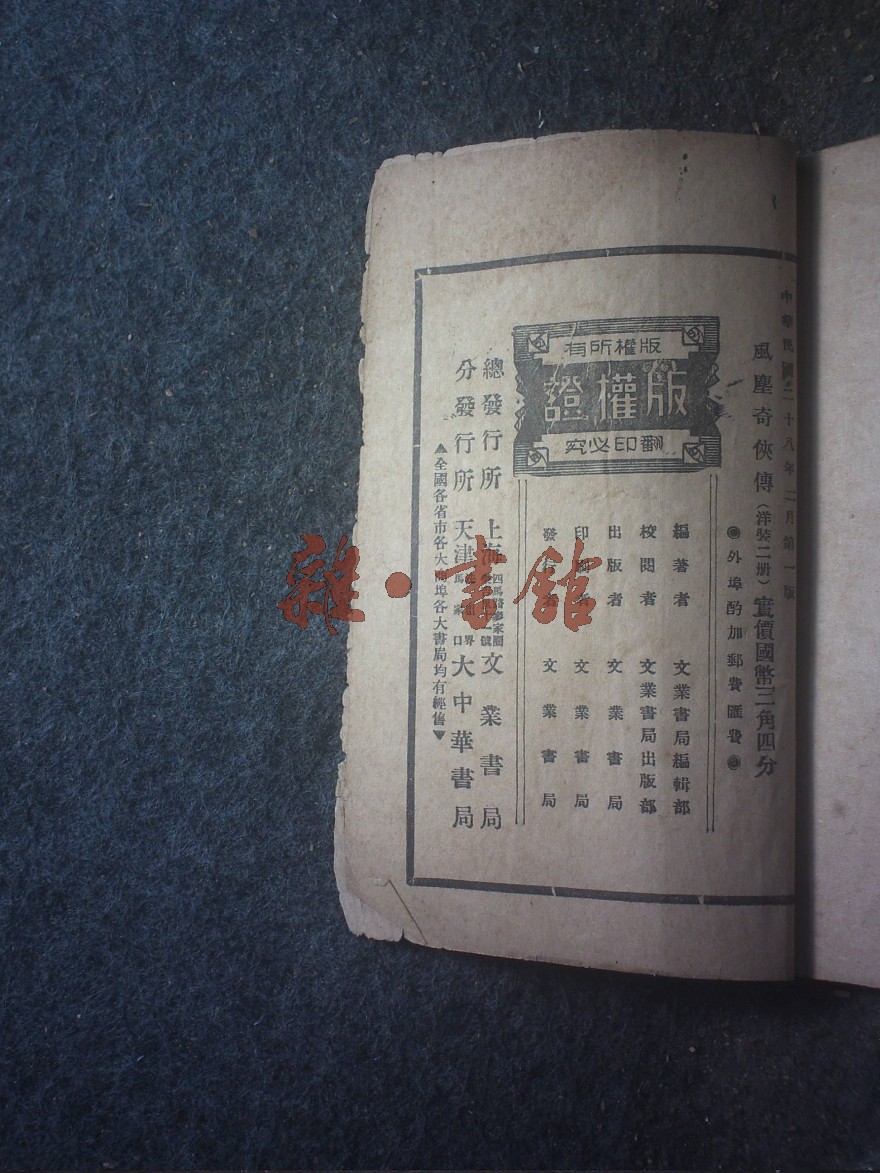 中華民國二十八年二月第一版
風塵奇俠傳(洋裝二册)實價國幣三角四分
◉外埠酌加郵費匯費◉
版權所有
版權證
翻印必究
編著者 文業書局編輯部
校閱者 文業書局出版部
出版者 文業書局
印刷者 文業書局
發行者 文業書局
總發行所 上海四馬路 文業書局
分發行所 天津 大中華書局
▲全國各省市各大商埠各大書局均有經售▼
雜·書館